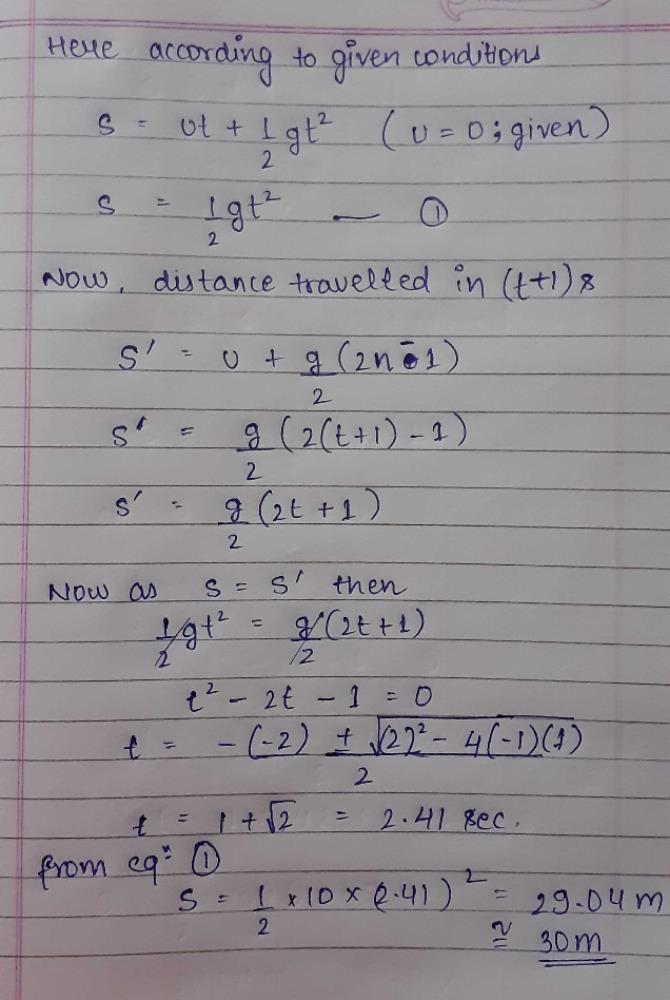 Here according to given conditions
s = ut + 1/2 gt² (u = 0; given)
s = 1/2 gt² — ①
Now, distance travelled in (t+1)s
s' = u + g/2 (2n-1)
s' = g/2 (2(t+1) - 1)
s' = g/2 (2t + 1)
Now as s = s' then
1/2 gt² = g/2 (2t + 1)
t² - 2t - 1 = 0
t = -(-2) ± √(2)² - 4(-1)(1) / 2
t = 1 + √2 = 2.41 sec.
from eqⁿ ①
s = 1/2 × 10 × (2.41)² = 29.04 m
≅ 30m